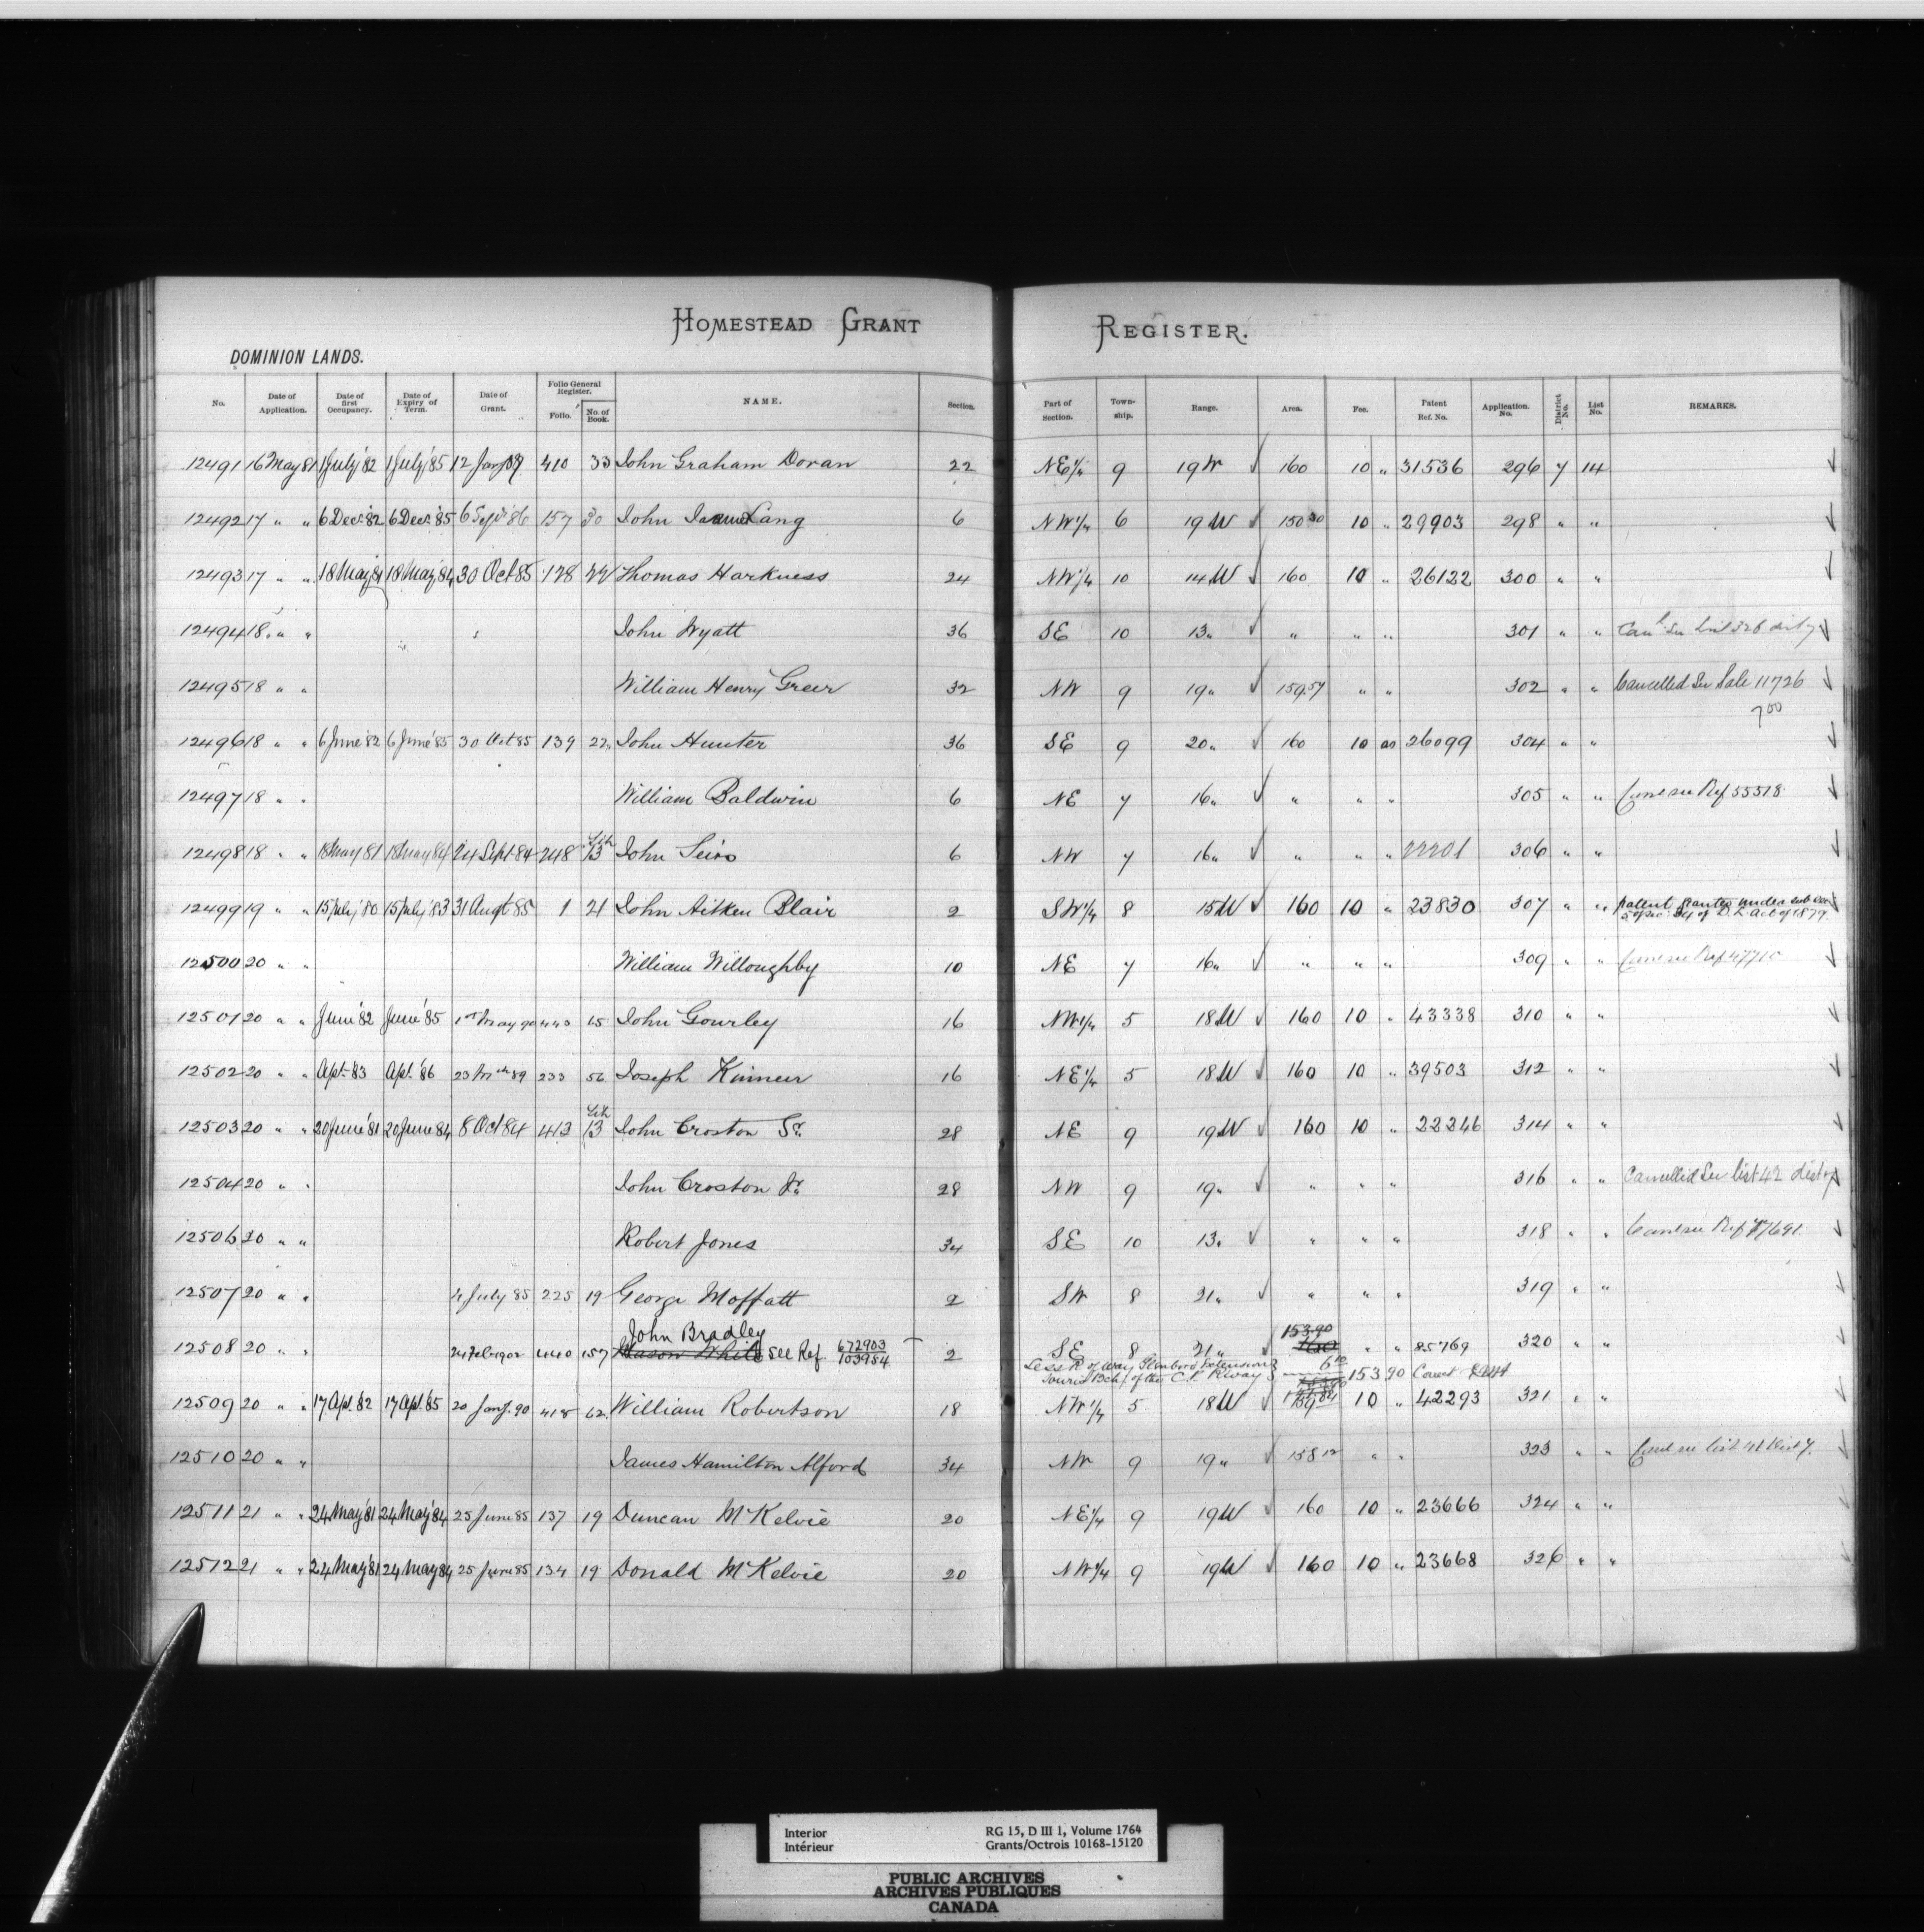 HOMESTEAD GRANT REGISTER.
DOMINION LANDS.
No. Date of Application. Date of first Occupancy. Date of Expiry of Term. Date of Grant. Folio General Register. Folio. No. of Book. NAME. Section. Part of Section. Town-ship. Range. Area. Fee. Patent Ref. No. Application. No. District No. List No. REMARKS.
12491 16 May 81 1 July '82 1 July '85 12 Jany 410 33 John Graham Doran 22 NE 1/4 9 19 W 160 10 " 31536 296 7 14
12492 17 " " 6 Decr. 82 6 Decr. '85 6 Sept '86 157 30 John Lang 6 NW 1/4 6 19 W 150 30 10 " 29903 298 " "
12493 17 " " 18 May 81 18 May '84 30 Oct 85 128 22 Thomas Harkness 24 NW 1/4 10 14 W 160 10 " 26122 300 " "
12494 18 " " John Wyatt 36 SE 10 13 " " " " 301 " " Canl See List 326 dist 7
12495 18 " " William Henry Greer 32 NW 9 19 " 159.57 " " 302 " " Cancelled See Sale 11726
700
12496 18 " " 6 June '82 6 June '85 30 Oct 85 139 22 John Hunter 36 SE 9 20 " 160 10 00 26099 304 " "
12497 18 " " William Baldwin 6 NE 7 16 " " " " 305 " " Canc see Ref 55518
12498 18 " " 18 May 81 18 May 84 24 Sept 84 248 Lih 13 John 6 NW 7 16 " " " " 22201 306 " "
12499 19 " " 15 July '80 15 July '83 31 Augt 85 1 21 John Aitken Blair 2 SW 1/4 8 15 W 160 10 " 23830 307 " " patent granted under sub sec
5 of sec. 34 of D. L. Act of 1879.
12500 20 " " William Willoughby 10 NE 7 16 " " " " 309 " " Canc see Ref
12501 20 " " June '82 June '85 1st May 90 443 65 John Gourley 16 NW 1/4 5 18 W 160 10 " 43338 310 " "
12502 20 " " Apl. '83 Apl. '86 23 Mch 89 233 56 Joseph Kinneur 16 NE 1/4 5 18 W 160 10 " 39503 312 " "
12503 20 " " 20 June '81 20 June 84 8 Oct 84 413 Lih 13 John Croston Sr. 28 NE 9 19 W 160 10 " 22246 314 " "
12504 20 " " John Croston Jr. 28 NW 9 19 " " " " 316 " " Cancelled See list 42 dist 7
12506 20 " " Robert Jones 34 SE 10 13 " " " " 318 " " Canc see Ref 77691
12507 20 " " 4 July 85 225 19 George Moffatt 2 SW 8 21 " " " " 319 " "
John Bradley 153.90
12508 20 " " 24 Feb 1902 440 157 Mason White see Ref. 672903 103954 2 SE 8 21 " 160 " " 85769 320 " "
Less R. of Way Glenboro Extension 6 10
Souris Bch. of the C.P. Rway 153 90
12509 20 " " 17 Apl. 82 17 Apl. 85 20 Jany. 90 418 62 William Robertson 18 NW 1/4 5 18 W 159.84 10 " 42293 321 " "
12510 20 " " James Hamilton Alford 34 NW 9 19 " 158 12 " " 323 " " Canc see list 41 dist 7
12511 21 " " 24 May '81 24 May '84 25 June 85 137 19 Duncan McKelvie 20 NE 1/4 9 19 W 160 10 " 23666 324 " "
12512 21 " " 24 May '81 24 May 84 25 June 85 134 19 Donald McKelvie 20 NW 1/4 9 19 W 160 10 " 23668 326 " "
Interior RG 15, D III 1, Volume 1764
Intérieur Grants/Octrois 10168-15120
PUBLIC ARCHIVES
ARCHIVES PUBLIQUES
CANADA